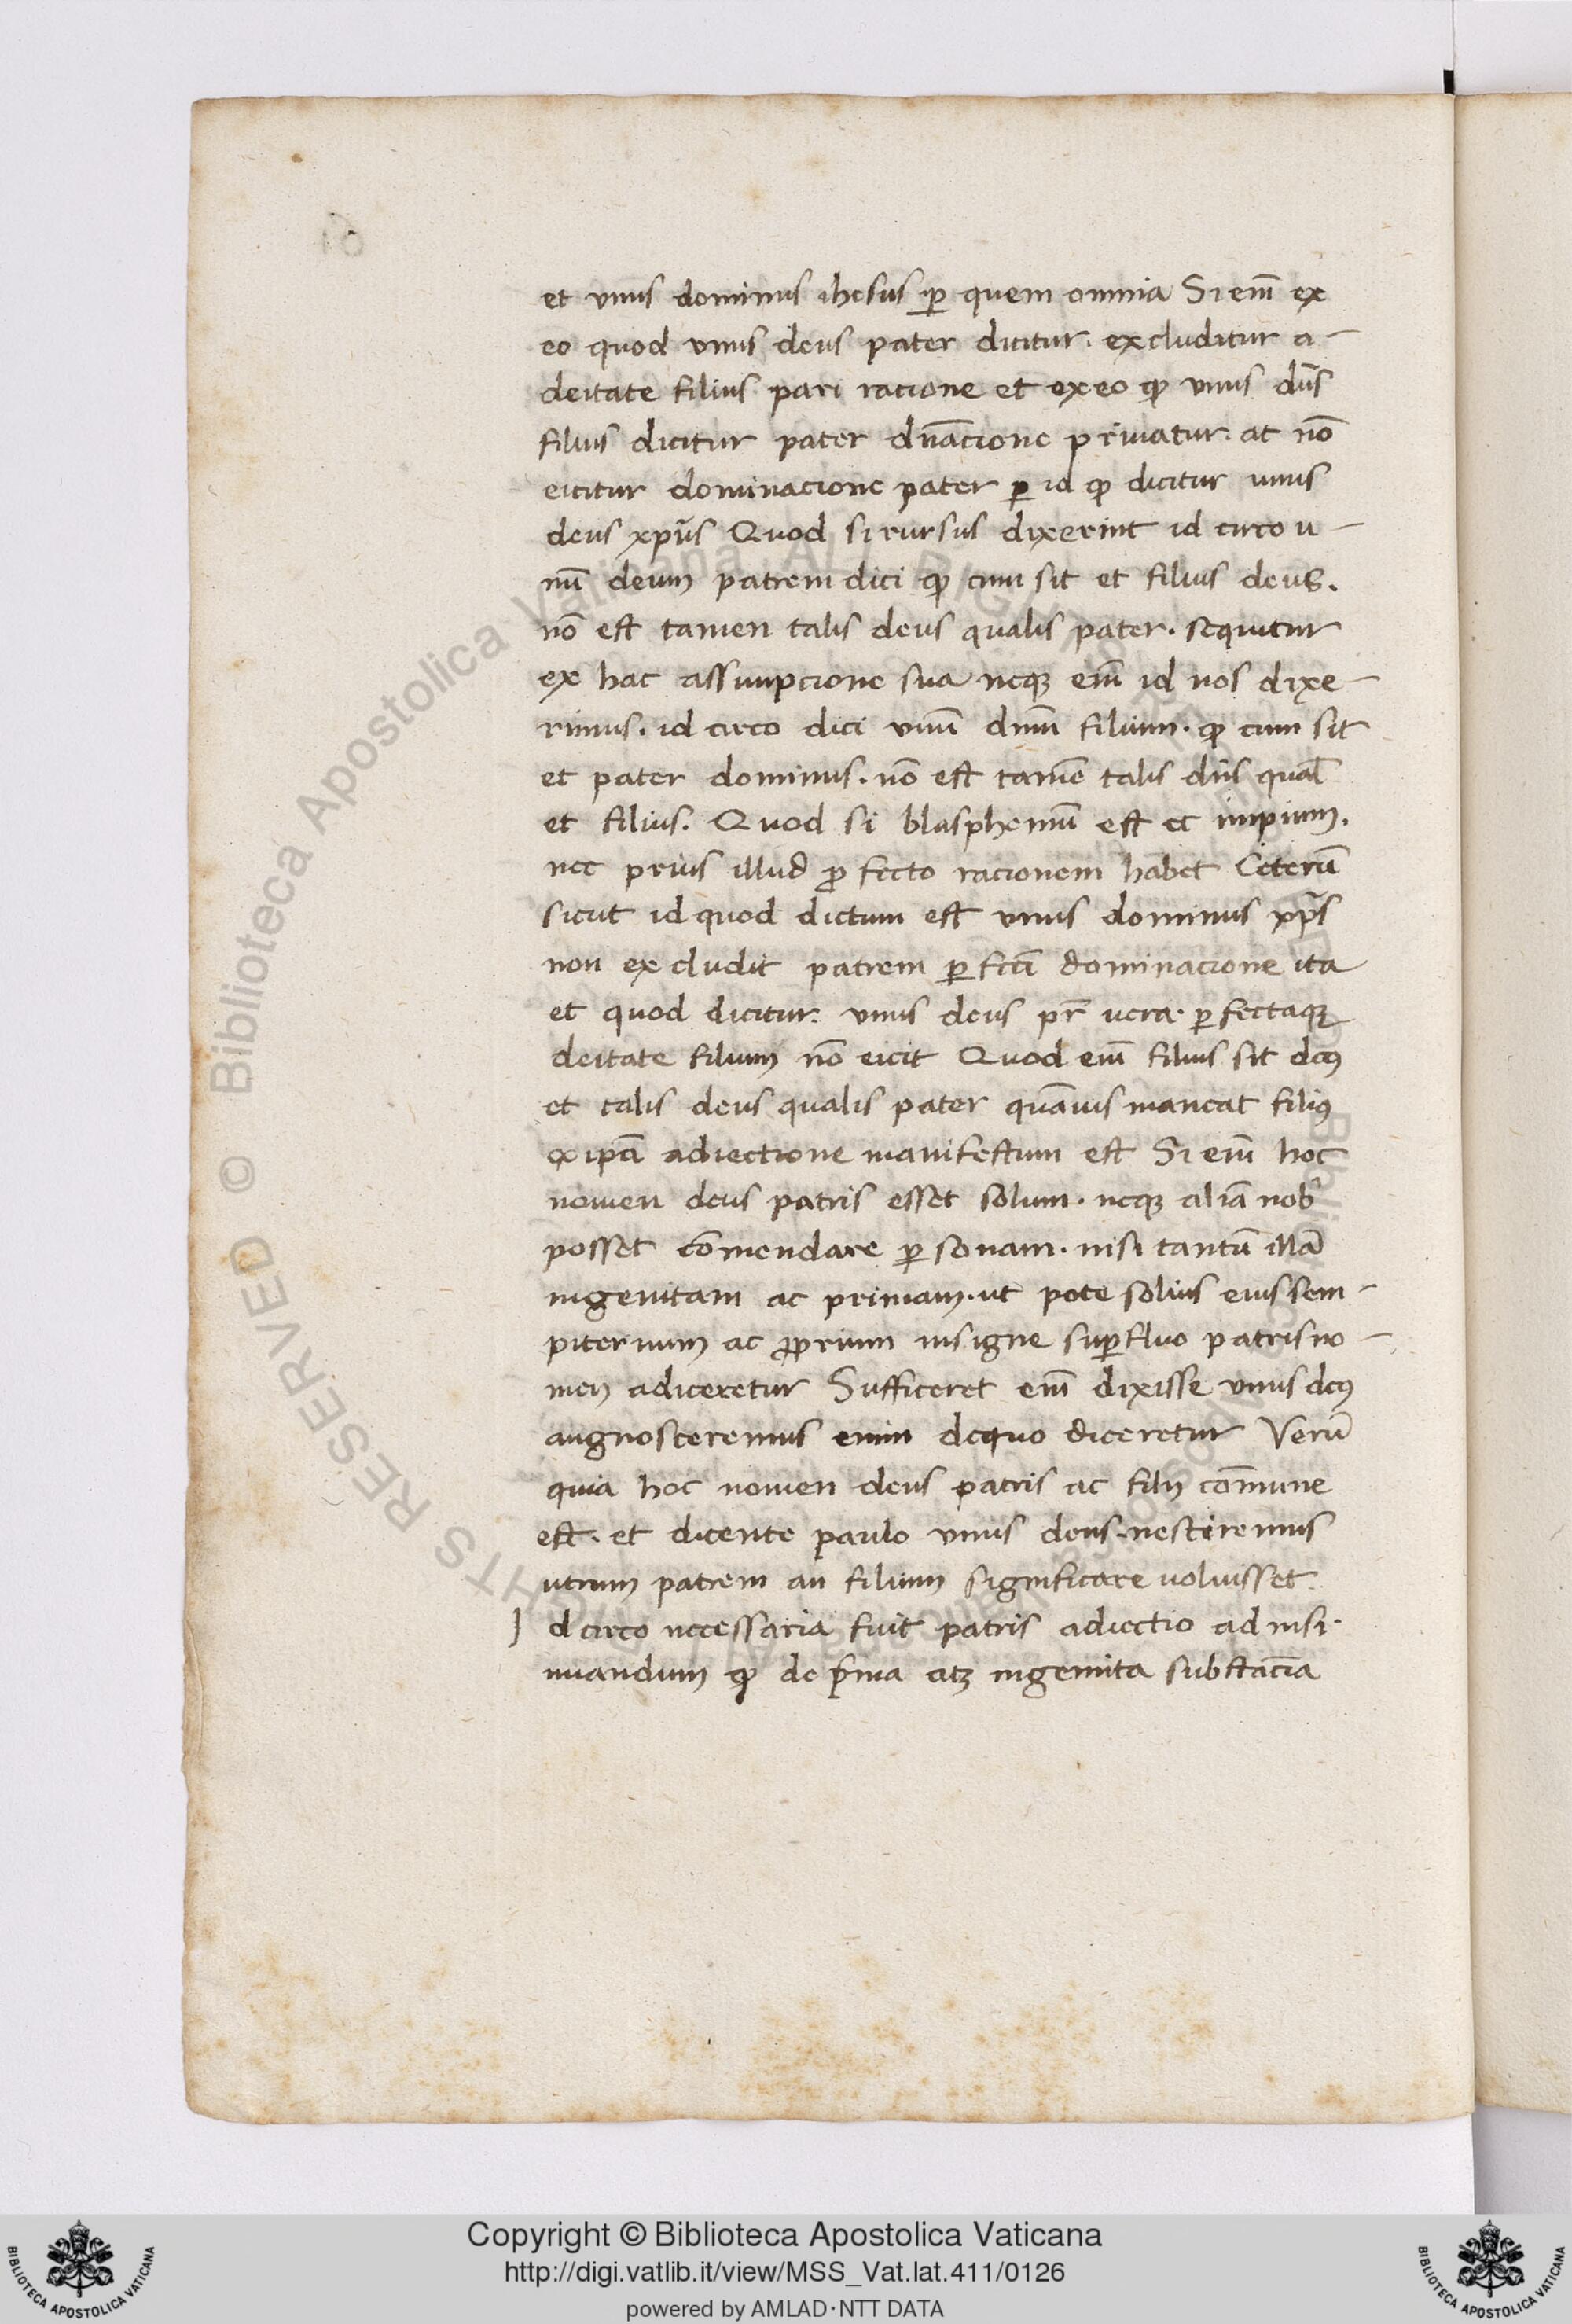 et vnus dominus ihesus ꝑ quem omnia Si eni᷑ ex
eo quod vnus deus pater dicitur. excluditur a-
deitate filius pari racione et ex eo ꝙ vnus dn̄s
filius dicitur pater dn̄acione priuatur. at nō
eicitur dominacione pater ꝑ id ꝙ dicitur unus
deus xpūs Quod si rursus dixerint id circo u-
nū deum patrem dici ꝙ cum sit et filius deus.
nō est tamen talis deus qualis pater. sequitur
ex hac assumpcione sua neqꝫ em̄ id nos dixe-
rimus. id circo dici vnū dnm̄ filium. ꝙ cum sit
et pater dominus. nō est tamē talis dn̄s qual̄
et filius. Quod si blasphemū est et impium.
nec prius illud ꝓfecto racionem habet Ceterū
sicut id quod dictum est vnus dominus xp̄s
non excludit patrem ꝑfecti dominacione ita
et quod dicitur. vnus deus pr̄ uera. ꝑfectaqꝫ
deitate filium nō eicit Quod em̄ filius sit deꝰ
et talis deus qualis pater quāuis maneat filiꝰ
ex ipā adiectione manifestum est Si em̄ hoc
nomen deus patris esset solum. neqꝫ aliā nob̄
posset cōmendare ꝑsonam. nisi tantū illā
ingenitam ac primam. ut pote solius eius sem-
piternum ac ꝓprium insigne suꝑfluo patris no-
men adiceretur Sufficeret em̄ dixisse vnus deꝰ
angnosceremus enim de quo diceretur Verū
quia hoc nomen deus patris ac filij cōmune
est. et dicente paulo vnus deus. nesciremus
utrum patrem an filium significare uoluisset.
Id circo necessaria fuit patris adiectio ad insi-
nuandum ꝙ de p̄ma atꝫ ingenita substācia
Copyright © Biblioteca Apostolica Vaticana
http://digi.vatlib.it/view/MSS_Vat.lat.411/0126
powered by AMLAD·NTT DATA